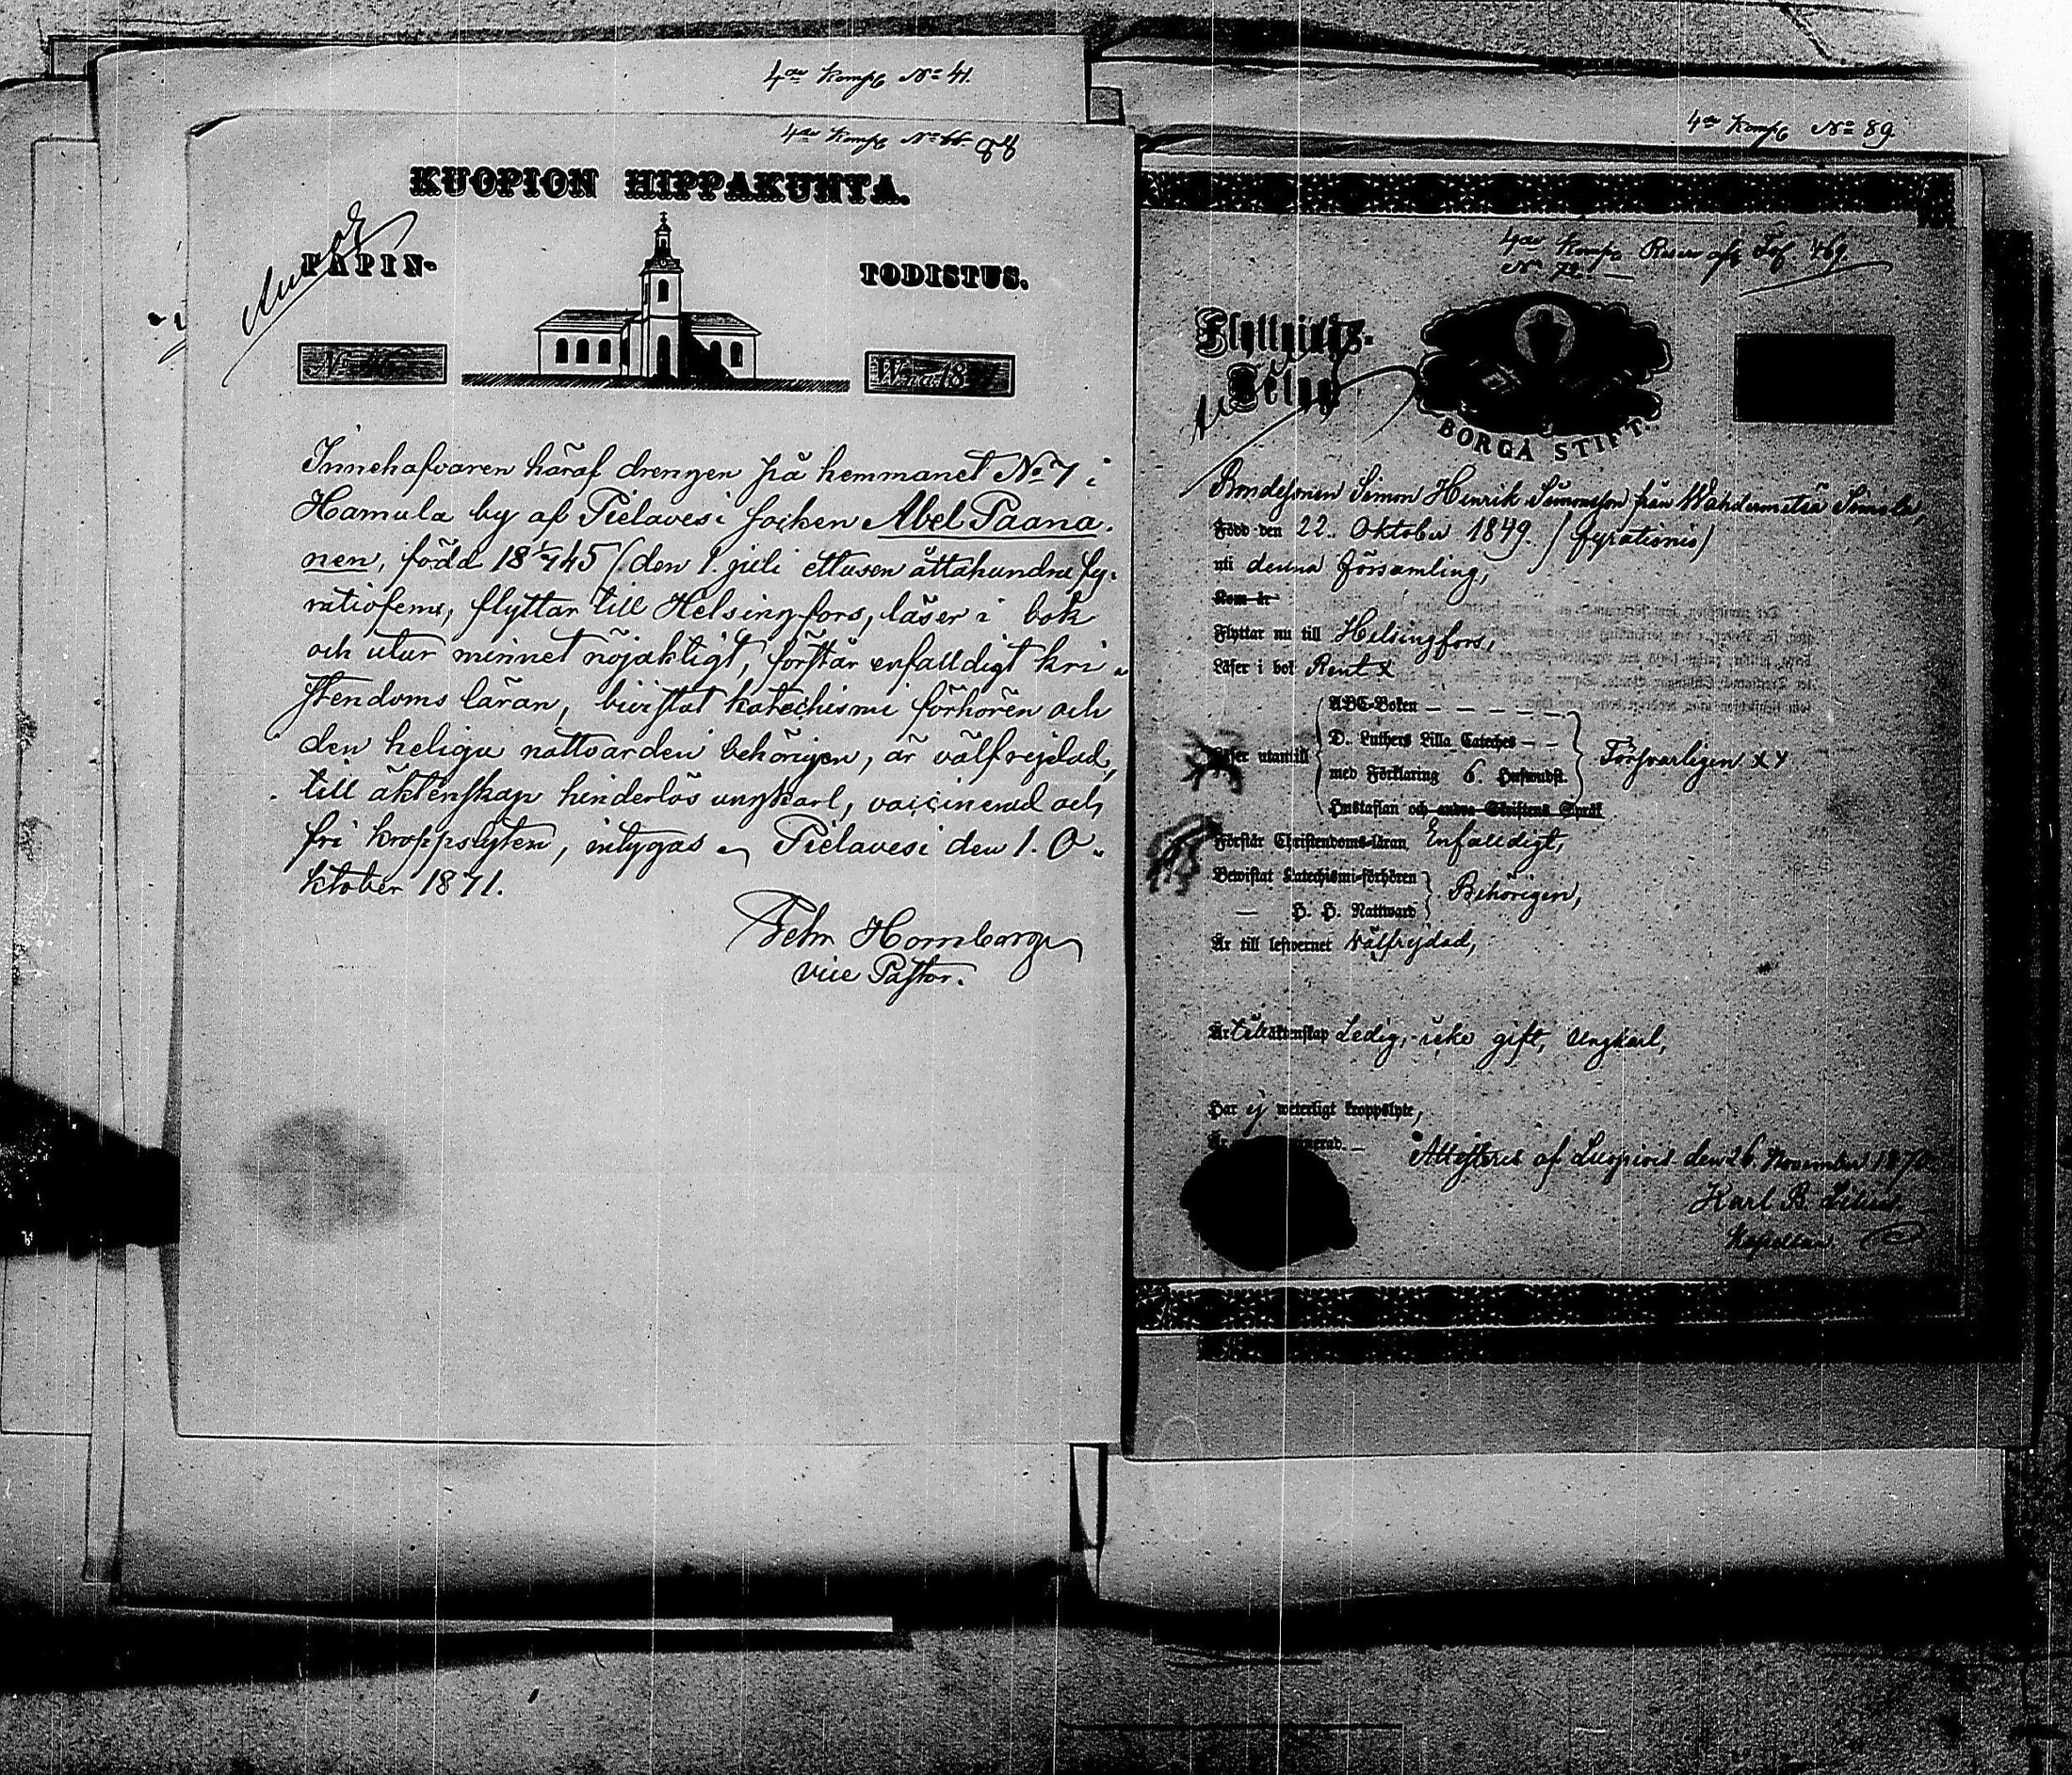 4de Komp. No 41.
4de Komp. No 66. 88
KUOPION HIPPAKUNTA.
PAPIN-
TODISTUS.
No
W:na 18
Innehafvaren häraf drengen på hemmanet No 7 i
Hamula by af Pielavesi socken Abel Paana-
nen, född 18 1/7 45 (den 1. juli ettusen åttahundra fy-
ratiofem, flyttar till Helsingfors, läser i bok
och utur minnet nöjaktigt, förstår enfalldigt kri-
stendoms läran, bivistat katechismi förhören och
den heliga nattvarden behörigen, är välfrejdad,
till äktenskap hinderlös ungkarl, vaccinerad och
fri kroppslyten, intygas Pielavesi den 1. O-
ktober 1871.
Hornborg
vice Pastor.
4de Komp. No 89
4de Komp. Reserv
No 72
Flyttnings-
Betyg
BORGÅ STIFT.
Bondesonen Simon Henrik Simonsson från Simola,
Född den 22. Oktober 1849.
uti denna församling,
Kom år
Flyttar nu till Helsingfors,
Läser i bok Rent x
ABC-Boken
D. Luthers Lilla Cateches
Läser utantill
med Förklaring 6. Hufwudst.
Försvarligen x
Hustaflan och andra Skriftens Språk
Förstår Christendoms-läran Enfalldigt,
Bewistat Katechismi-förhören
Behörigen,
— H. H. Nattward
Är till lefwernet Välfrejdad,
Är till äktenskap Ledig, icke gift, Ungkarl,
Har ej weterligt kroppslyte,
Är
Attesteras af den 26. November 1870
Karl B.
Kapellan